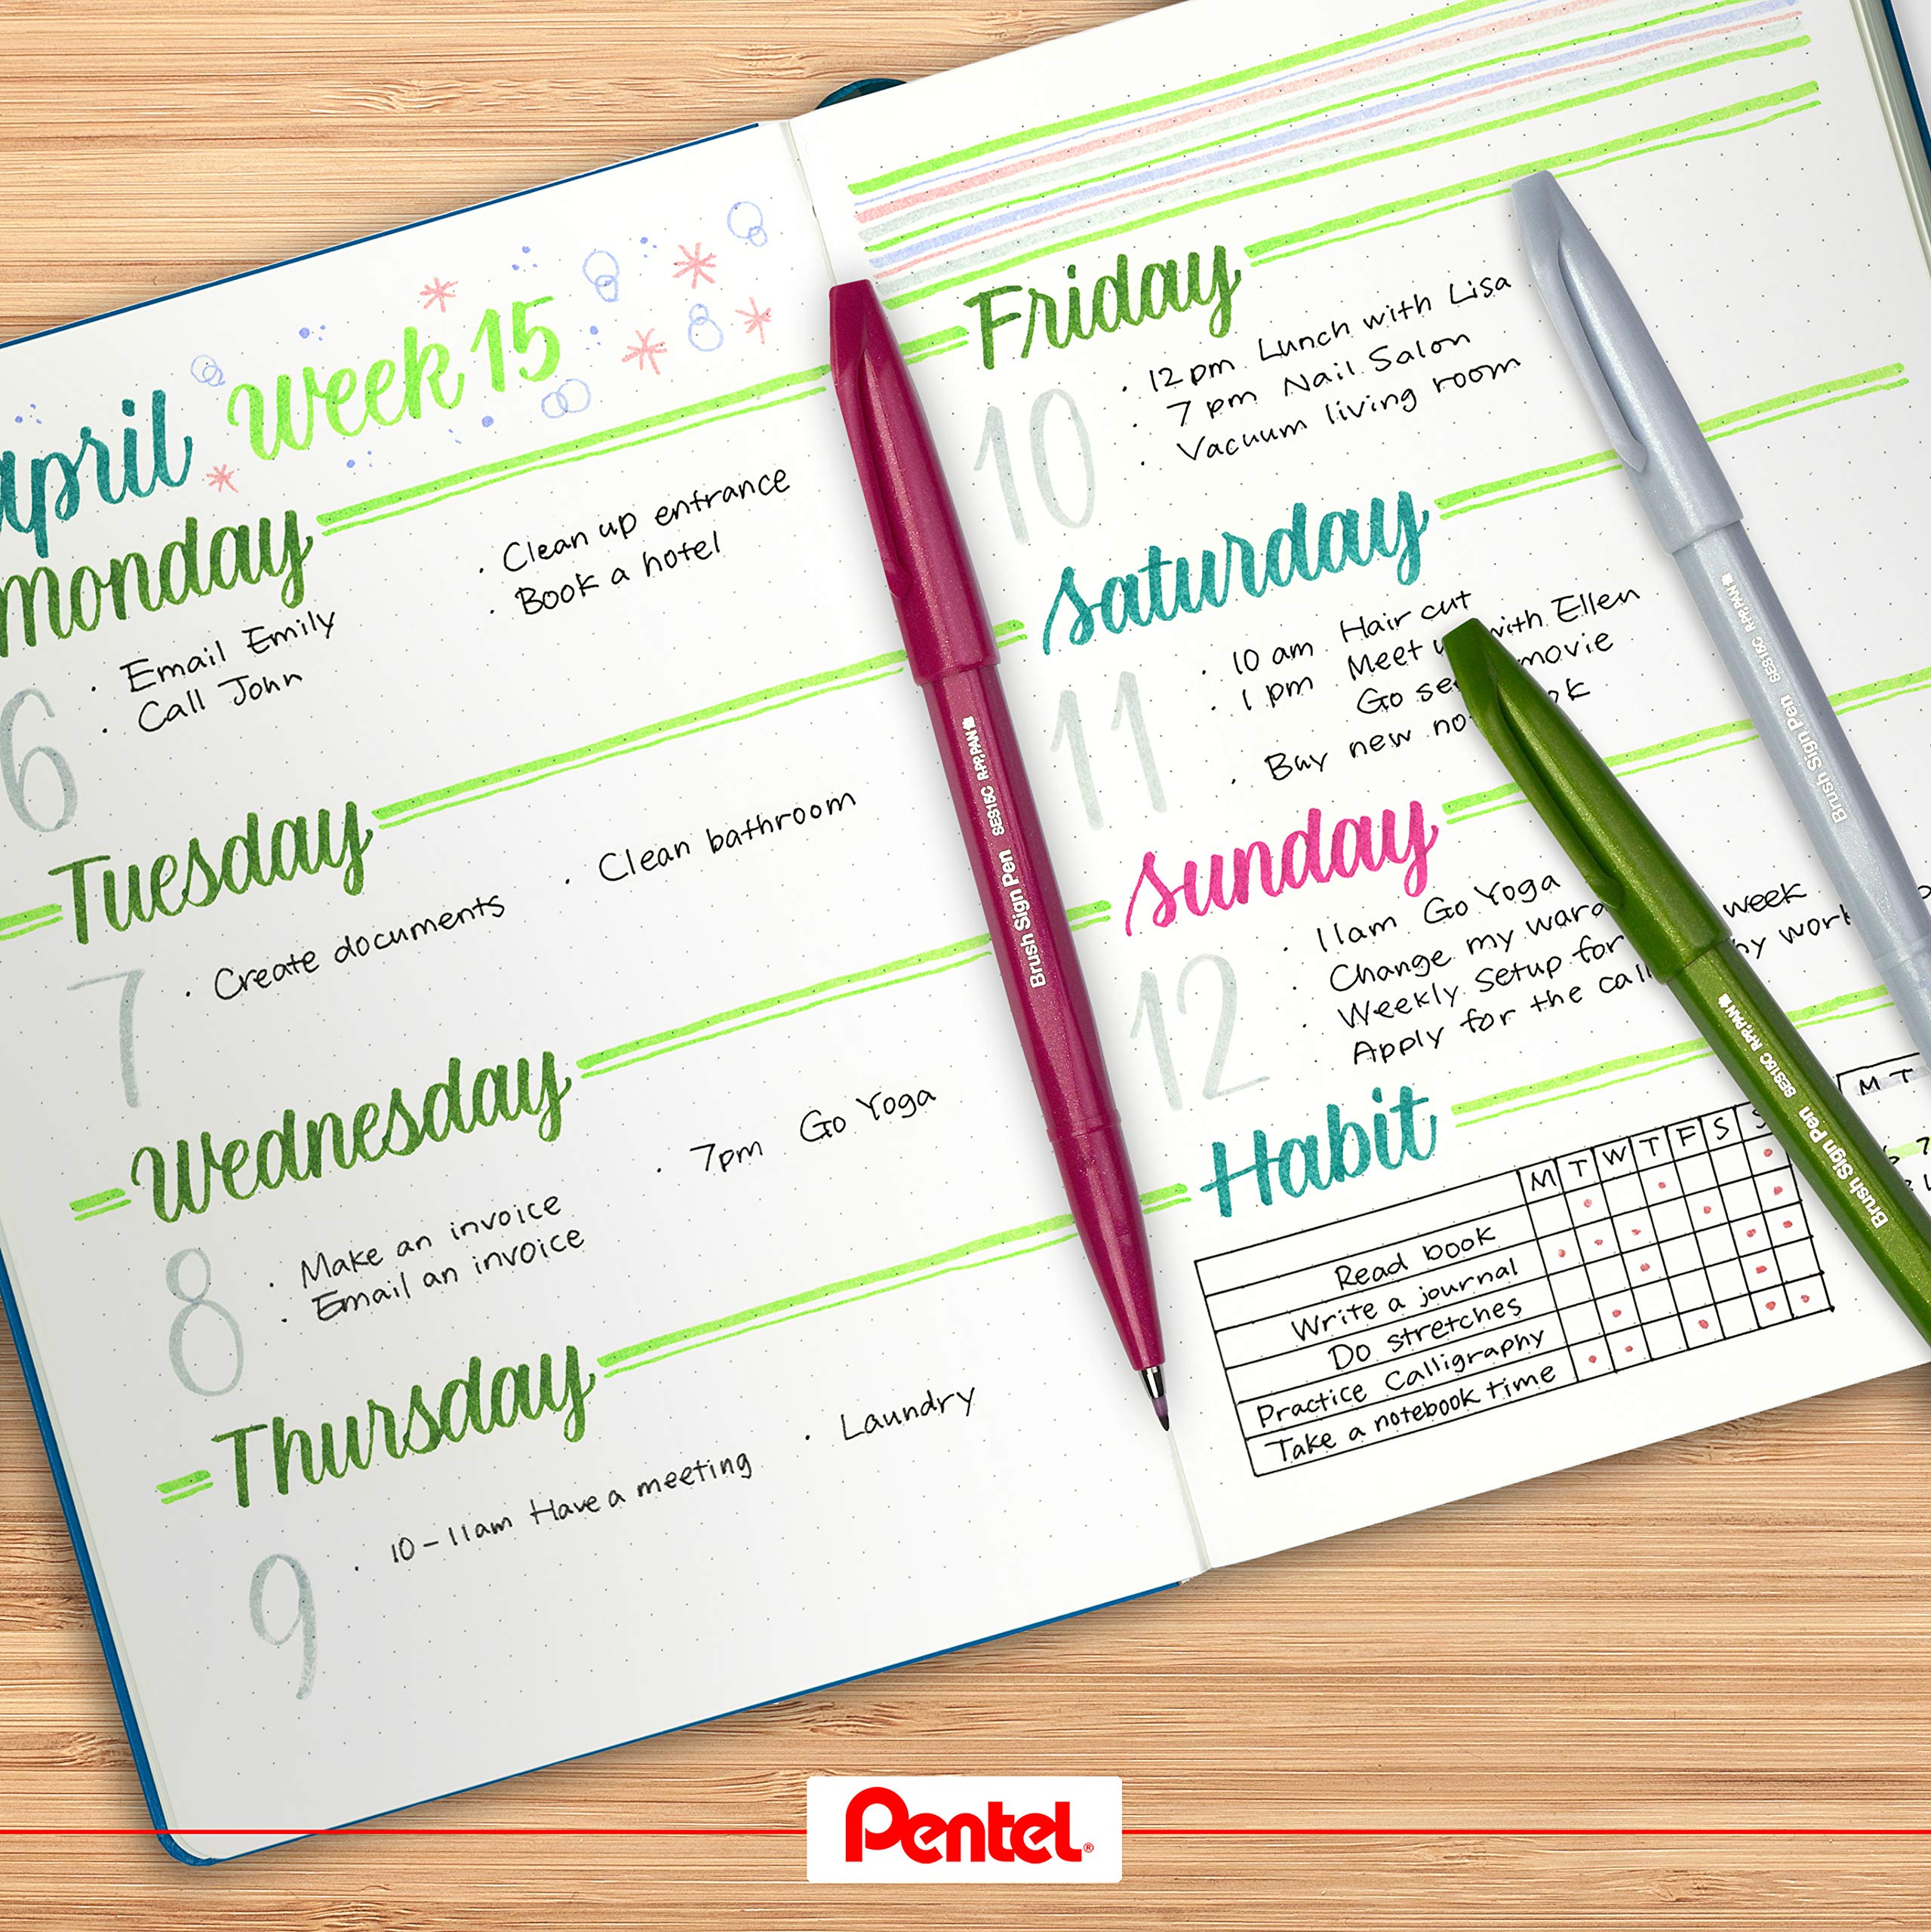 april week 15
monday
6
· Email Emily
· Call John
· Clean up entrance
· Book a hotel
Tuesday
7
· Create documents
· Clean bathroom
Wednesday
8
· Make an invoice
· Email an invoice
· 7pm Go Yoga
Thursday
9
· 10-11am Have a meeting
· Laundry
Friday
10
· 12pm Lunch with Lisa
· 7pm Nail Salon
· Vacuum living room
Saturday
11
· 10 am Hair cut
· 1 pm Meet with Ellen
Go movie
· Buy new
Sunday
12
· 11am Go Yoga
· Change my
· Weekly Setup for week
Apply for the work
Habit
M T W T F S S
Read book
Write a journal
Do stretches
Practice Calligraphy
Take a notebook time
M T
Brush Sign Pen SES15C P.P.PAN
Brush Sign Pen SES15C P.P.PAN
Brush Sign Pen SES15C P.P.PAN
Pentel®